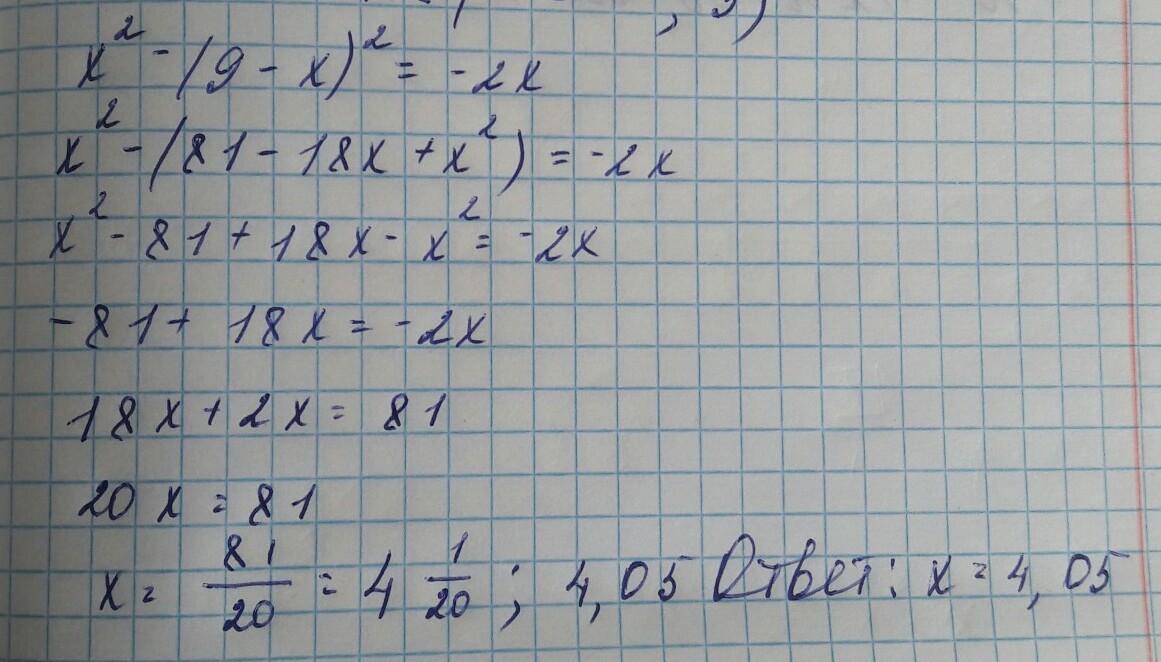 x² - (9 - x)² = -2x
x² - (81 - 18x + x²) = -2x
x² - 81 + 18x - x² = -2x
-81 + 18x = -2x
18x + 2x = 81
20x = 81
x = 81/20 = 4 1/20 ; 4,05 Ответ: x = 4,05